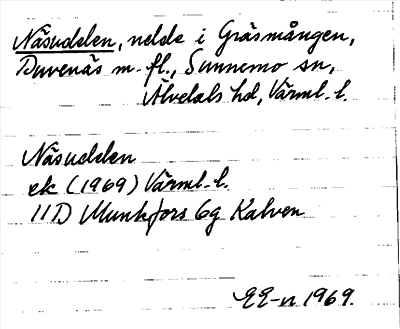 Näsudden, nelde i Gräsmången,
Duvenäs m. fl., Sunnemo sn,
Älvdals hd, Värml. l.
Näsudden
ek (1969) Värml. l.
11D Munkfors 6g Kalven
EE-n 1969.